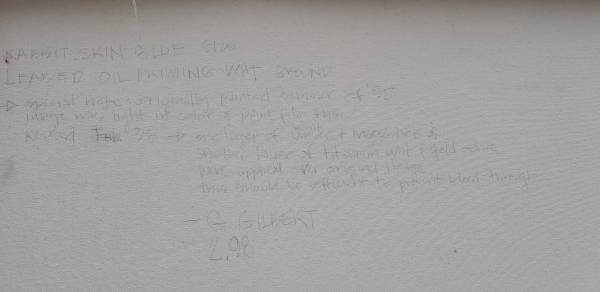 RABBIT SKIN GLUE SIZE
LEADED OIL PRIMING WHT GROUND
→ special note: originally painted summer of '95
image was light in color & paint film thin
Feb '98 → one layer of
another layer of titanium wht &
were applied over original image
this should be sufficient to prevent bleed through
- G GILBERT
2.98